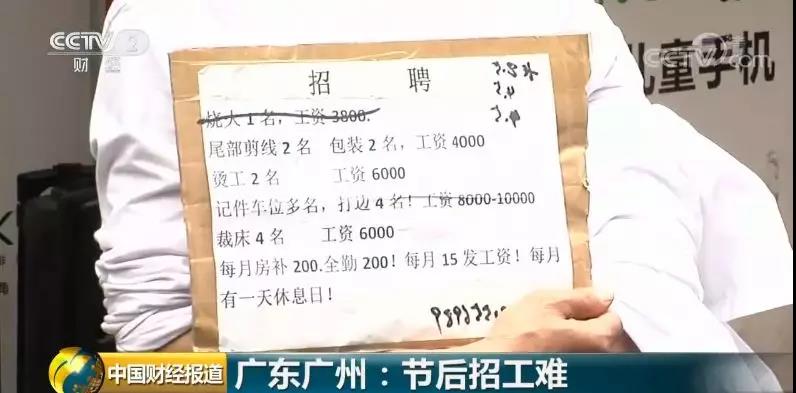 CCTV 2
财经
CCTV 2
儿童手机
招 聘
烧火1名，工资3800.
尾部剪线2名 包装2名，工资4000
烫工2名 工资6000
记件车位多名，打边4名！工资8000-10000
裁床4名 工资6000
每月房补200.全勤200！每月15发工资！每月
有一天休息日！
中国财经报道
广东广州：节后招工难